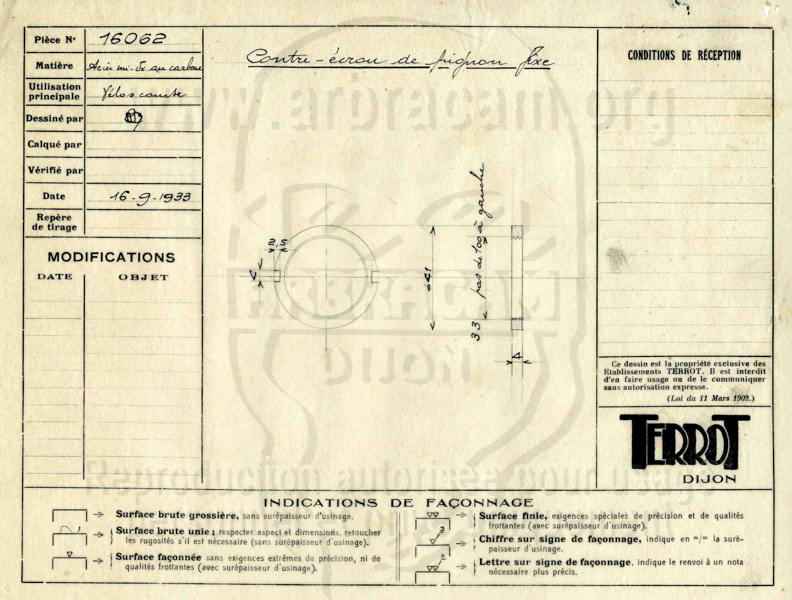 Pièce N° 16062
Matière Acier mi-dx au carbone
Utilisation
principale Vélos course
Dessiné par
Calqué par
Vérifié par
Date 16-9-1933
Repère
de tirage
MODIFICATIONS
DATE OBJET
Contre-écrou de pignon fixe
2,5
4
41
33 pas de 100 à gauche
4
CONDITIONS DE RÉCEPTION
Ce dessin est la propriété exclusive des
Etablissements TERROT. Il est interdit
d'en faire usage ou de le communiquer
sans autorisation expresse.
(Loi du 11 Mars 1902.)
TERROT
DIJON
www.arbracam.org
ARBRACAM
DIJON
Reproduction autorisée pour usage
INDICATIONS DE FAÇONNAGE
Surface brute grossière, sans surépaisseur d'usinage.
Surface brute unie ; respecter aspect et dimensions, retoucher
les rugosités s'il est nécessaire (sans surépaisseur d'usinage).
Surface façonnée sans exigences extrêmes de précision, ni de
qualités frottantes (avec surépaisseur d'usinage).
Surface finie, exigences spéciales de précision et de qualités
frottantes (avec surépaisseur d'usinage).
Chiffre sur signe de façonnage, indique en ᵐ/ᵐ la suré-
paisseur d'usinage.
Lettre sur signe de façonnage, indique le renvoi à un nota
nécessaire plus précis.